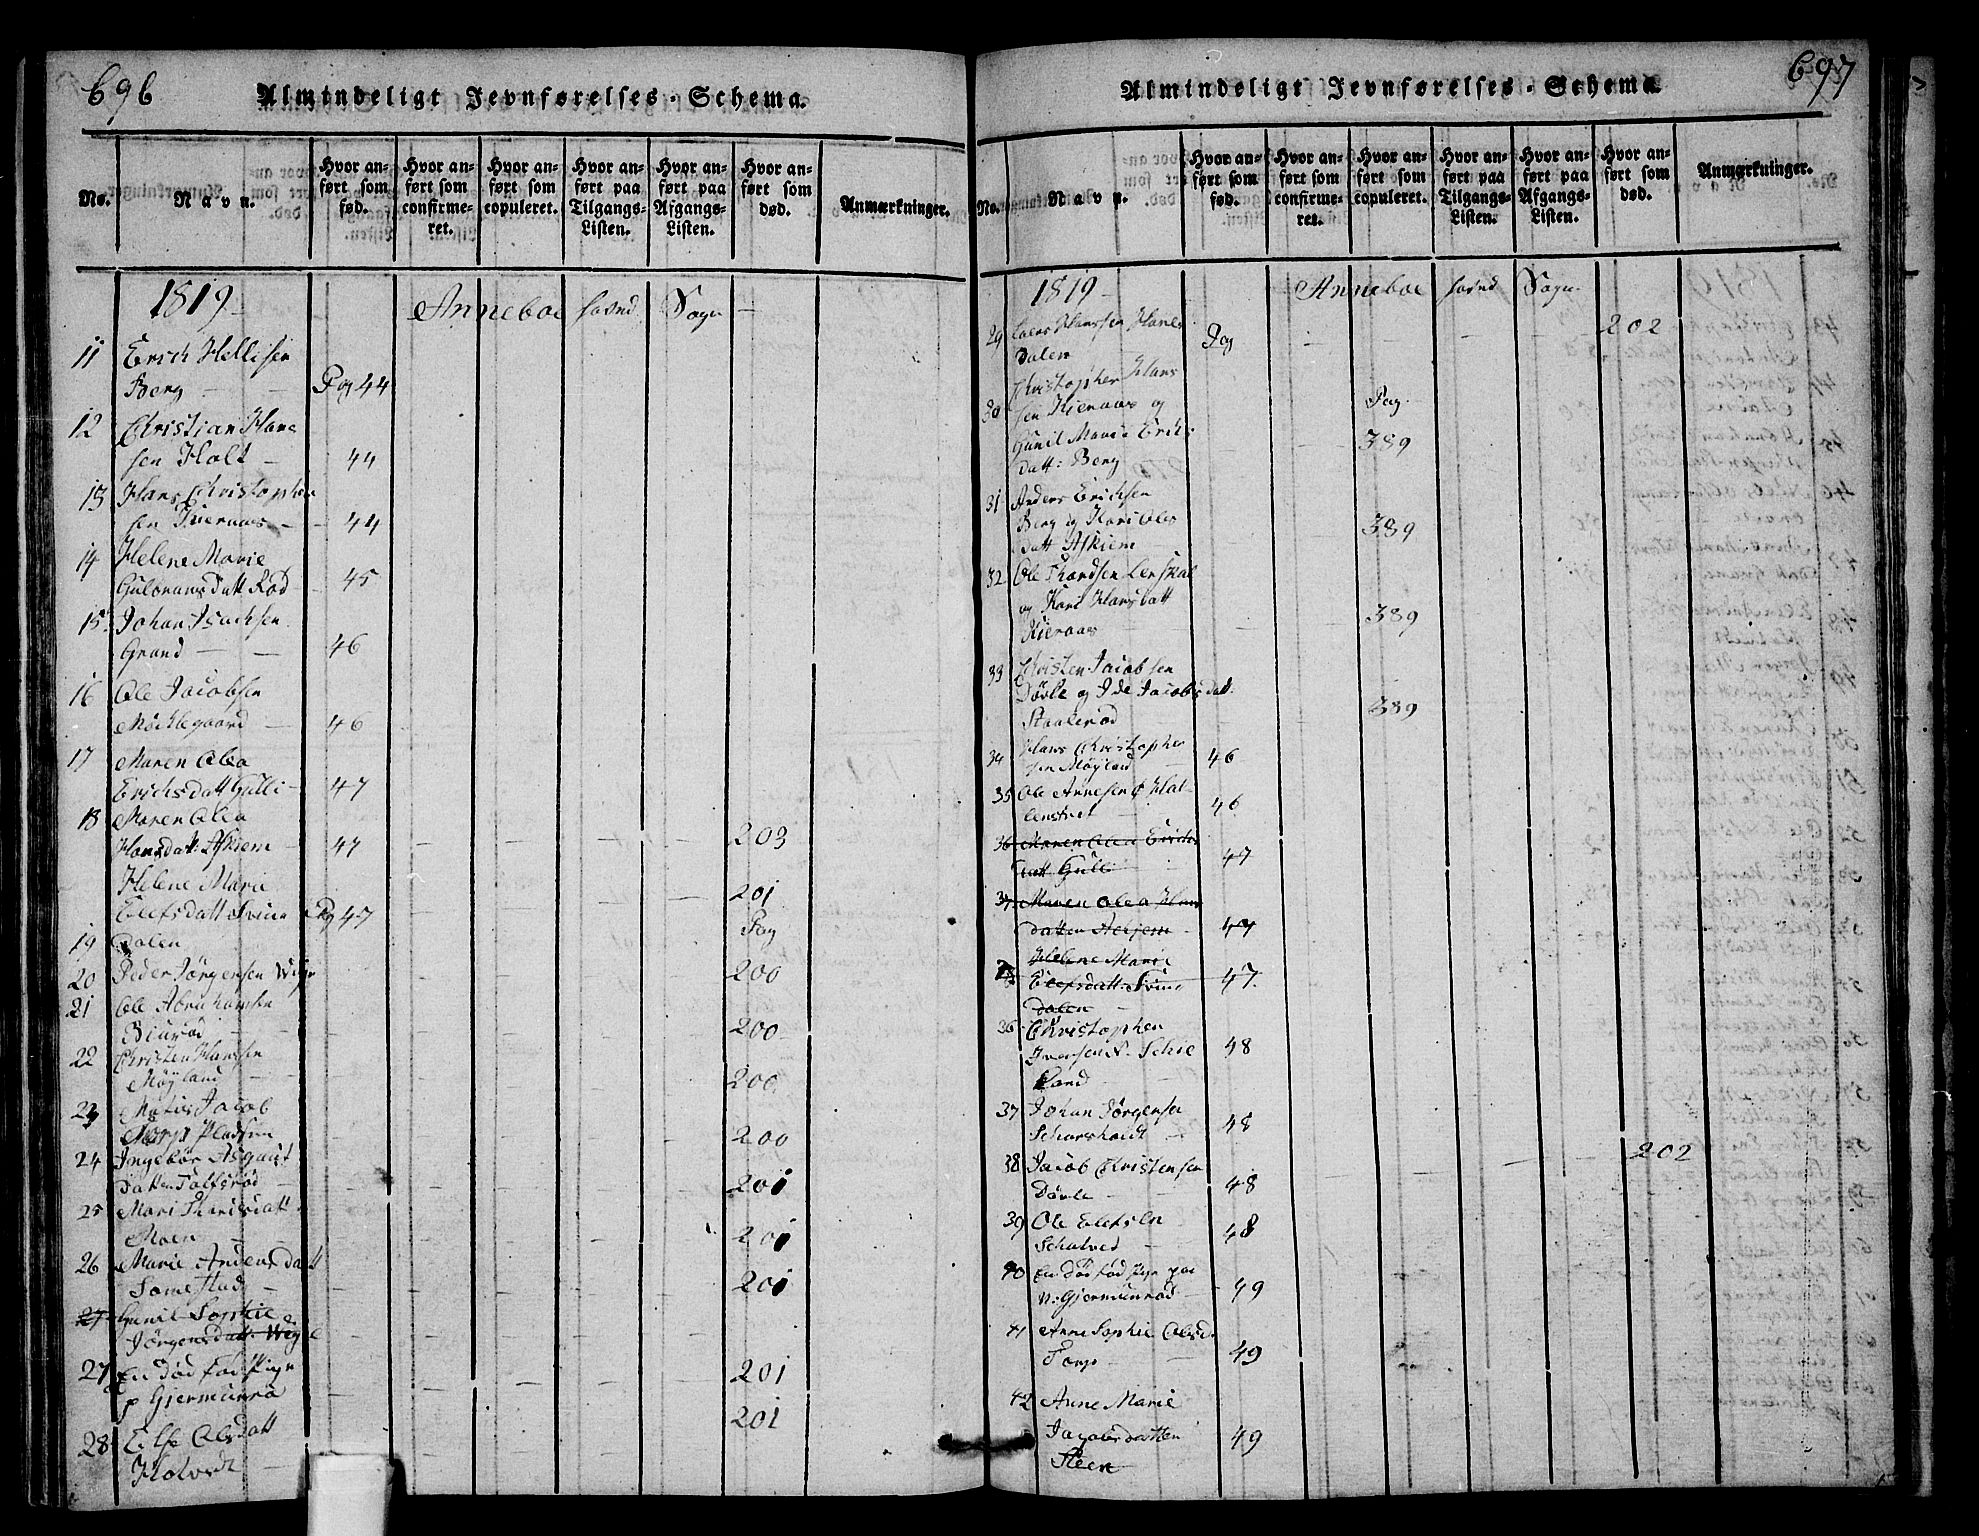 696
Almindeligt Jevnførelses-Schema.
No.
Navn.
Hvor an-
ført som
fød.
Hvor an-
ført som
confirme-
ret.
Hvor an-
ført som
copuleret.
Hvor an-
ført paa
Tilgangs-
Listen.
Hvor an-
ført paa
Afgangs-
Listen.
Hvor an-
ført som
død.
Anmærkninger.
1819 Anneboe Sogn
11 Erich Hellisen
Berg Pg 44
12 Christian Hans
sen Holt 44
13 Hans Christopher
sen Kieraas 44
14 Helene Marie
Gulbransdatt Rød 45
15 Johan Isachsen
Grand 46
16 Ole Jacobsen
Mochlegaard 46
17 Maren Olea
Erichsdatt Gulli 47
18 Maren Olea
Hansdatt: Askiem 47 203
Helene Marie 201
Elefsdatt Svine Pg 47 Pag
19 dalen
20 Peder Jørgensen 200
21 Ole Abrahamsen
Biurød 200
22 Christen Hanssen
Møyland 200
23 Jacob
Pladsen 200
24 Ingebor
datten Tolfsrød 201
25 Mari
Moen 201
26 Marie Andersdatt
Somestad 201
27 Gunil Sophie
Jørgensdatt:
27 En død fød Pige 201
p Gjermunrø
28 Olsdatt 201
697
Almindeligt Jevnførelses-Schema
No.
Navn.
Hvor an-
ført som
fød.
Hvor an-
ført som
confirme-
ret.
Hvor an-
ført som
copuleret.
Hvor an-
ført paa
Tilgangs-
Listen.
Hvor an-
ført paa
Afgangs-
Listen.
Hvor an-
ført som
død.
Anmærkninger.
1819 Anneboe Sogn
29 Hanssen 202
dalen Pag
Christopher Hans
30 sen Kieraas og Pag.
Gunil Marie Erichs 389
datt: Berg
31 Anders Erichsen
Berg og Kari Oles 389
datt Askiem
32 Ole
og Kari Hansdatt 389
Kieraas
33 Christen Jacobsen
Døvle og Ide Jacobsdatt. 389
Staalerød
34 Hans Christopher
sen Møyland 46
35 Ole Annesen
46
36 Maren Olea Erichs
datt Gulli 47
37 Maren Olea Hans
datten Askjem 47
Helene Marie
Elefsdatt: Svine 47
dalen
36 Christopher
Iversen N. 48
37 Johan Jørgensen
48
38 Jacob Christensen 202
Døvle 48
39 Ole Elefsen
48
40 En død fød Pige paa
N: Gjermunrød 49
41 Anne Sophie Olsd.
Torp 49
42 Anne Marie
Jacobsdatten 49
Steen